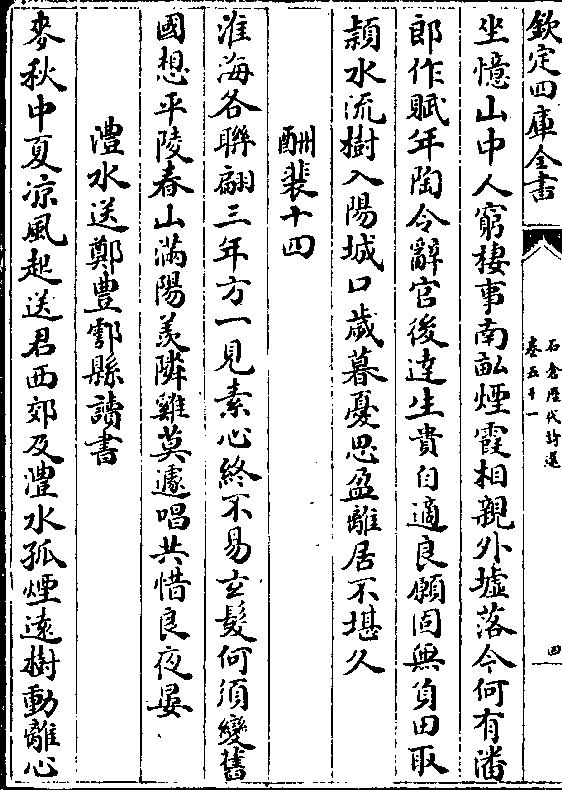 欽定四庫全書
石倉歷代詩選
卷五十一
四
坐憶山中人窮棲事南畝煙霞相親外墟落今何有潘
郎作賦年陶令辭官後達生貴自適良願固無負田取
潁水流樹入陽城口歲暮憂思盈離居不堪久
酬裴十四
淮海各聯翩三年方一見素心終不易玄髮何須變舊
國想平陵春山滿陽羨隣雞莫遽唱共惜良夜晏
澧水送鄭豐鄠縣讀書
麥秋中夏凉風起送君西郊及澧水孤煙遠樹動離心